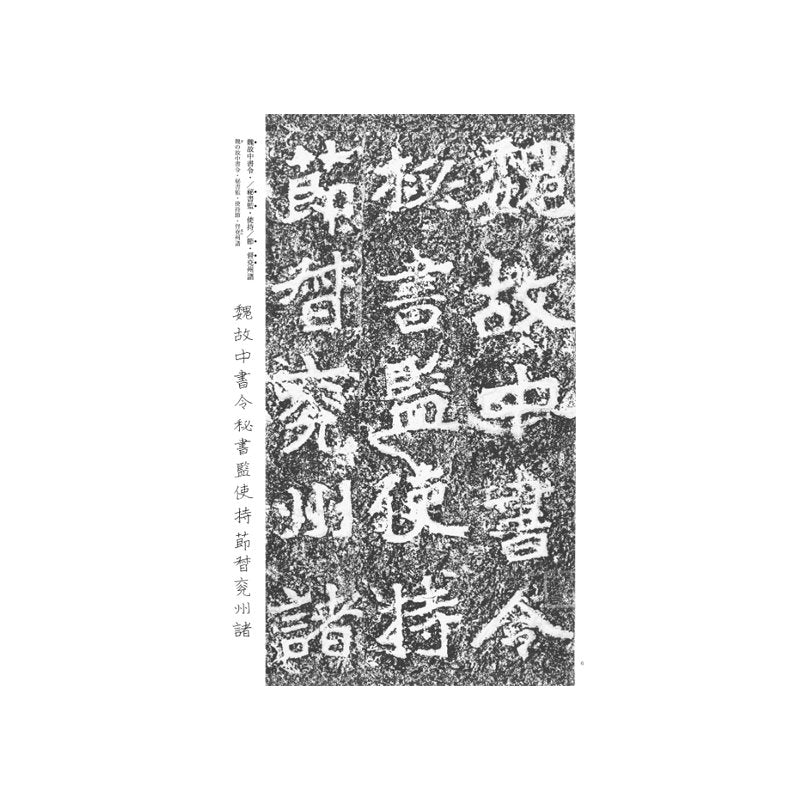 魏故中書令
秘書監使持
節督兖州諸
魏故中書令・／秘書監・使持／節・督兗州諸
魏の故中書令・秘書監・使持節・督兗州諸
魏故中書令秘書監使持節督兖州諸
6